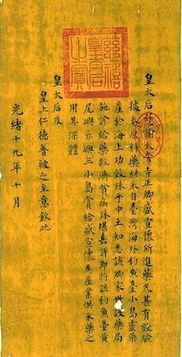 皇太后慈諭太常寺正卿盛宣懷所進藥丸甚有效驗
據奏原料藥材來自臺灣海外釣魚臺小島靈藥
產於海上功效殊乎中土知悉該卿家世設藥局
施診給藥救濟貧病殊堪嘉許即將該釣魚臺黃
尾嶼赤嶼三小島賞給盛宣懷為產業供采藥之
用其深體
皇太后及
皇上仁德普被之至意欽此
光緒十九年十月